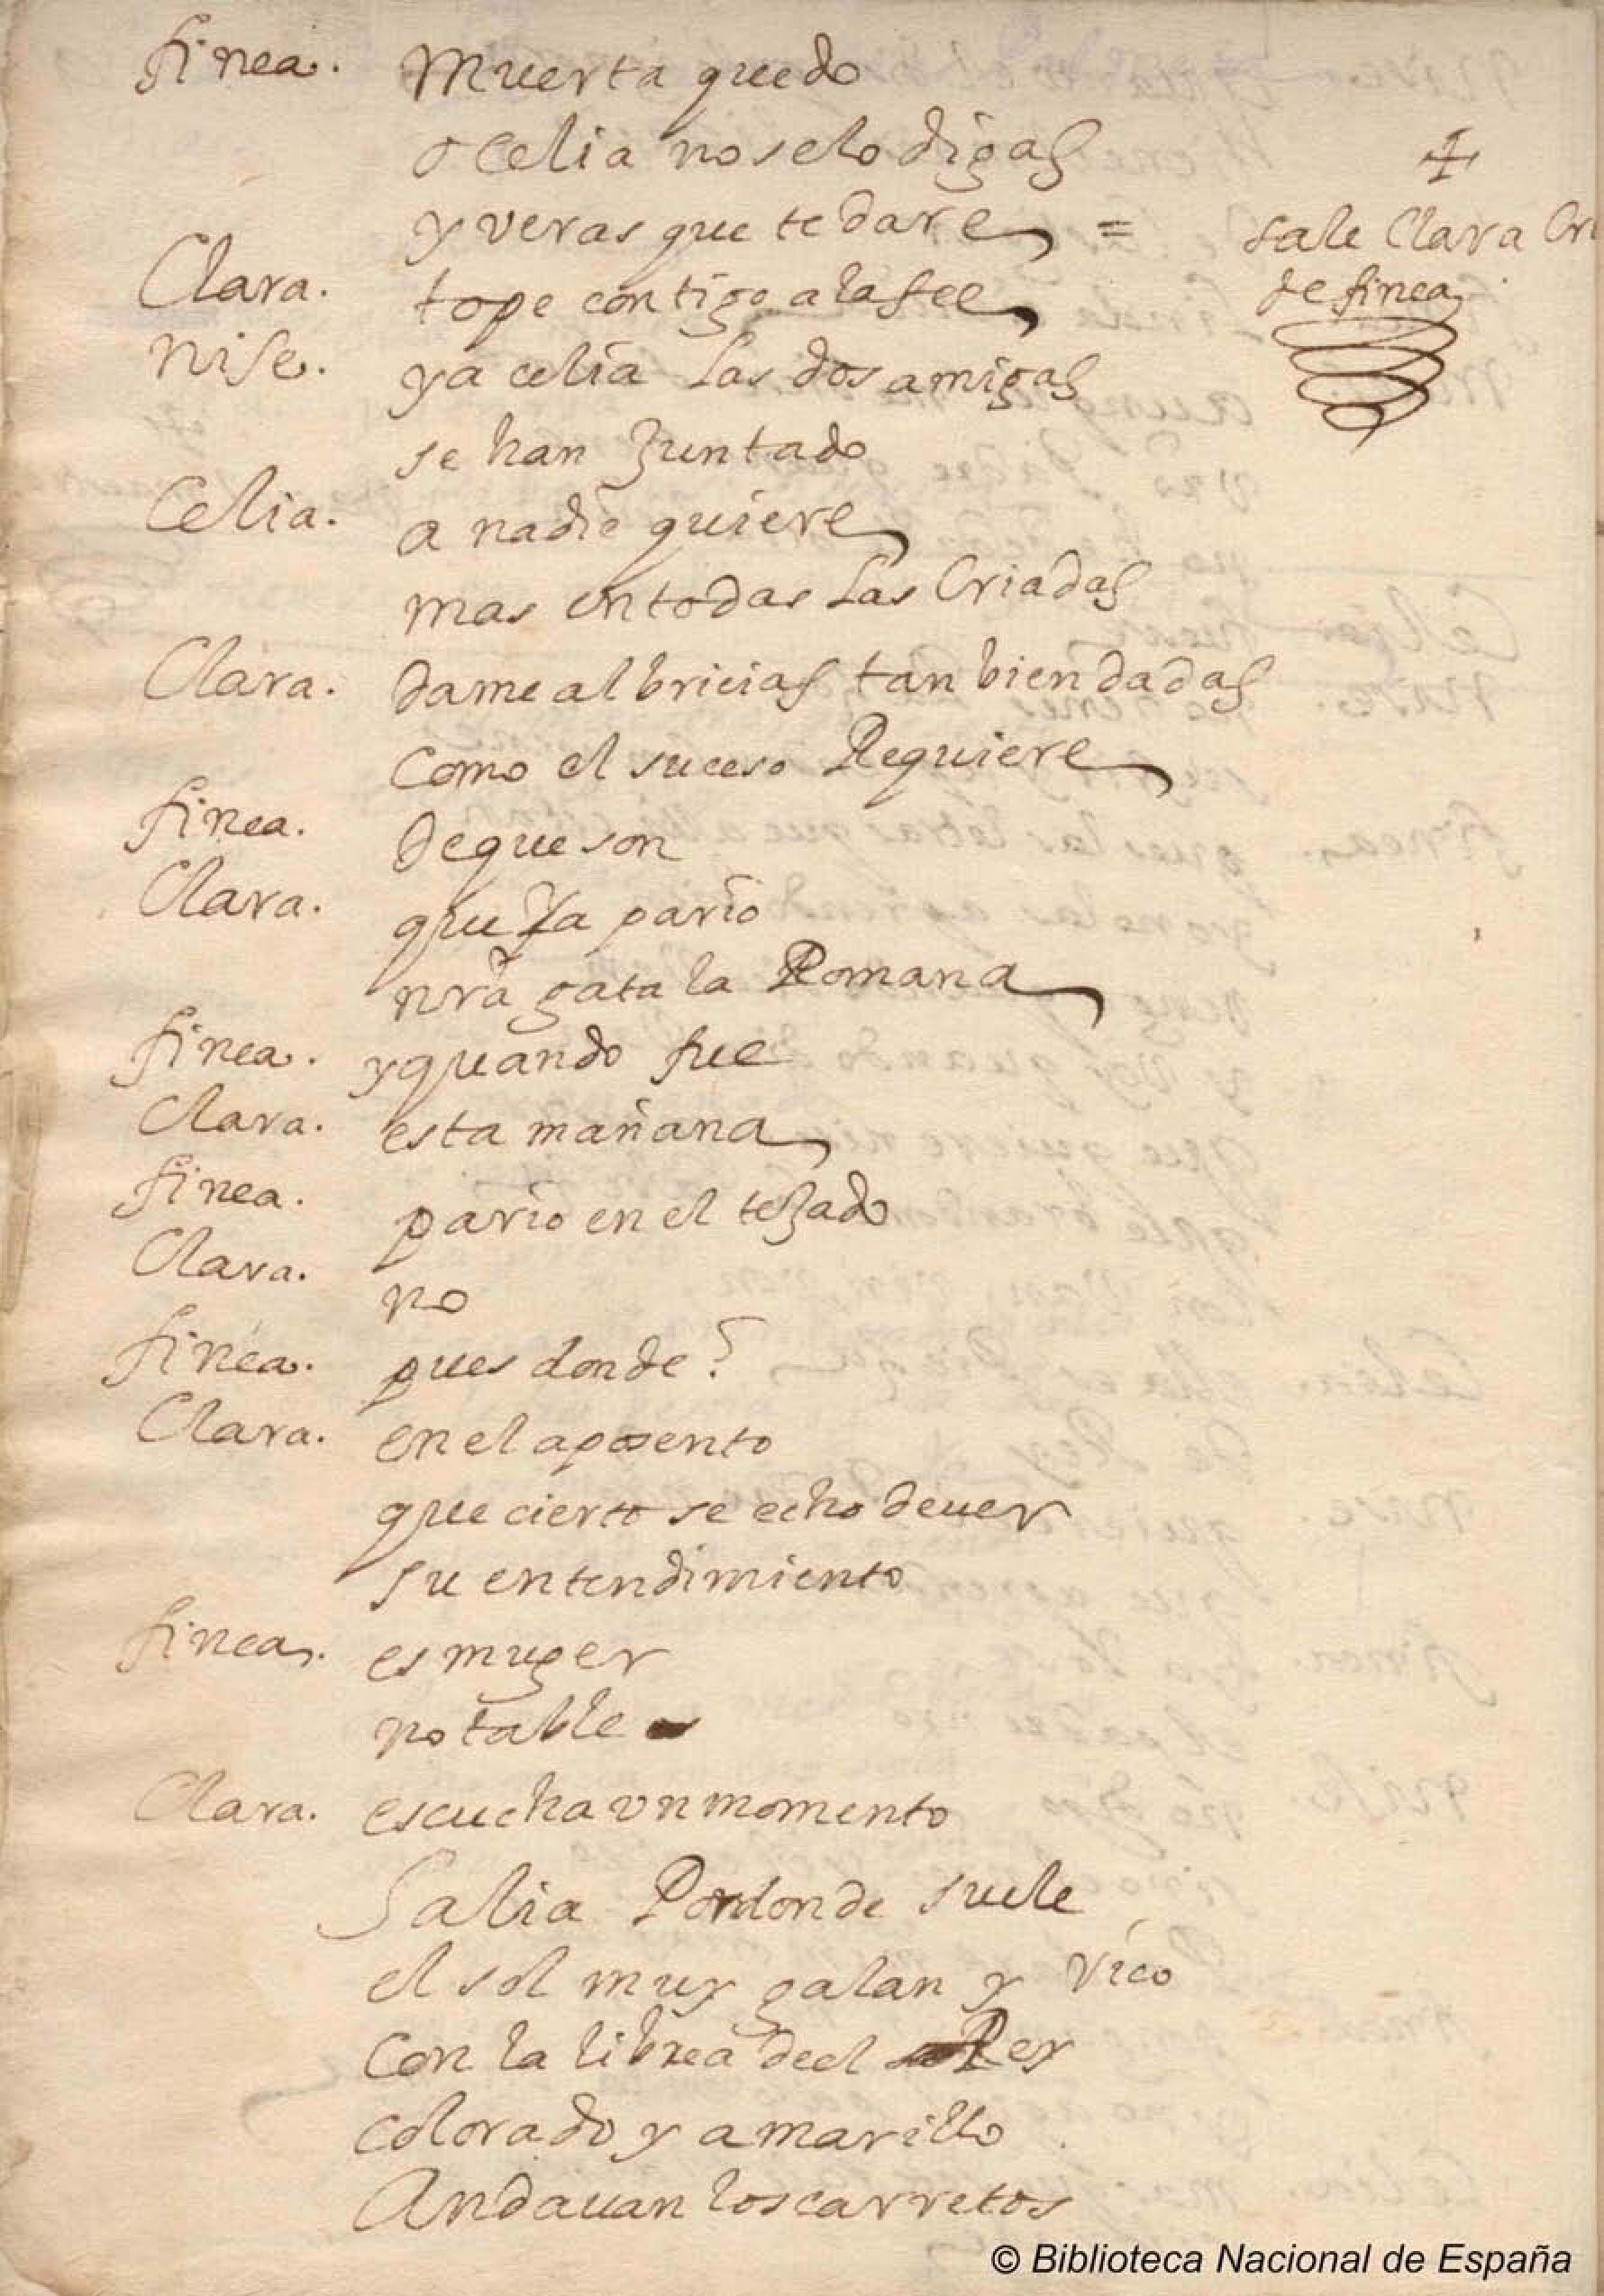 finea. Muerta quedo
o celia noselo digas
y veras que te dare =
sale Clara Cri
de finea
Clara. tope contigo a la fee
nise. ya celia las dos amigas
se han juntado
Celia. a nadie quiere
mas en todas las Criadas
Clara. dame albricias tan bien dadas
como el suceso Requiere
finea. deque son
Clara. que ya pario
nrã gata la Romana
finea. y quando fue
Clara. esta mañana
finea. pario en el tejado
Clara. no
finea. pues donde?
Clara. en el aposento
que cierto se echo dever
su entendimiento
finea. es muger
notable
Clara. escucha vn momento
Salia Por donde suele
el sol muy galan y rico
con la librea del Rey
colorado y amarillo
Andauan los carretos
© Biblioteca Nacional de España